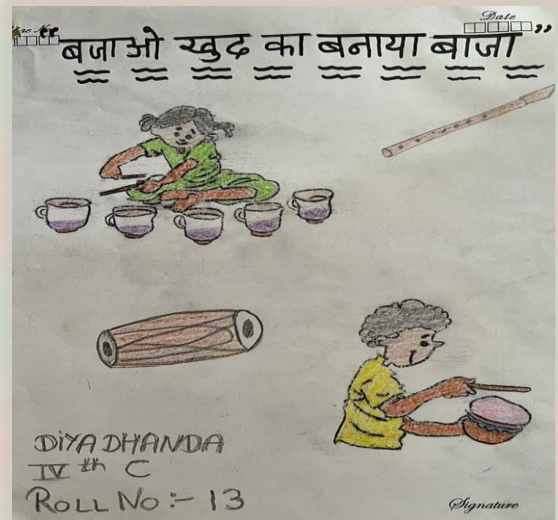 Date
“बजाओ खुद का बनाया बाजा”
DIYA DHANDA
IV th C
ROLL NO :- 13
Signature